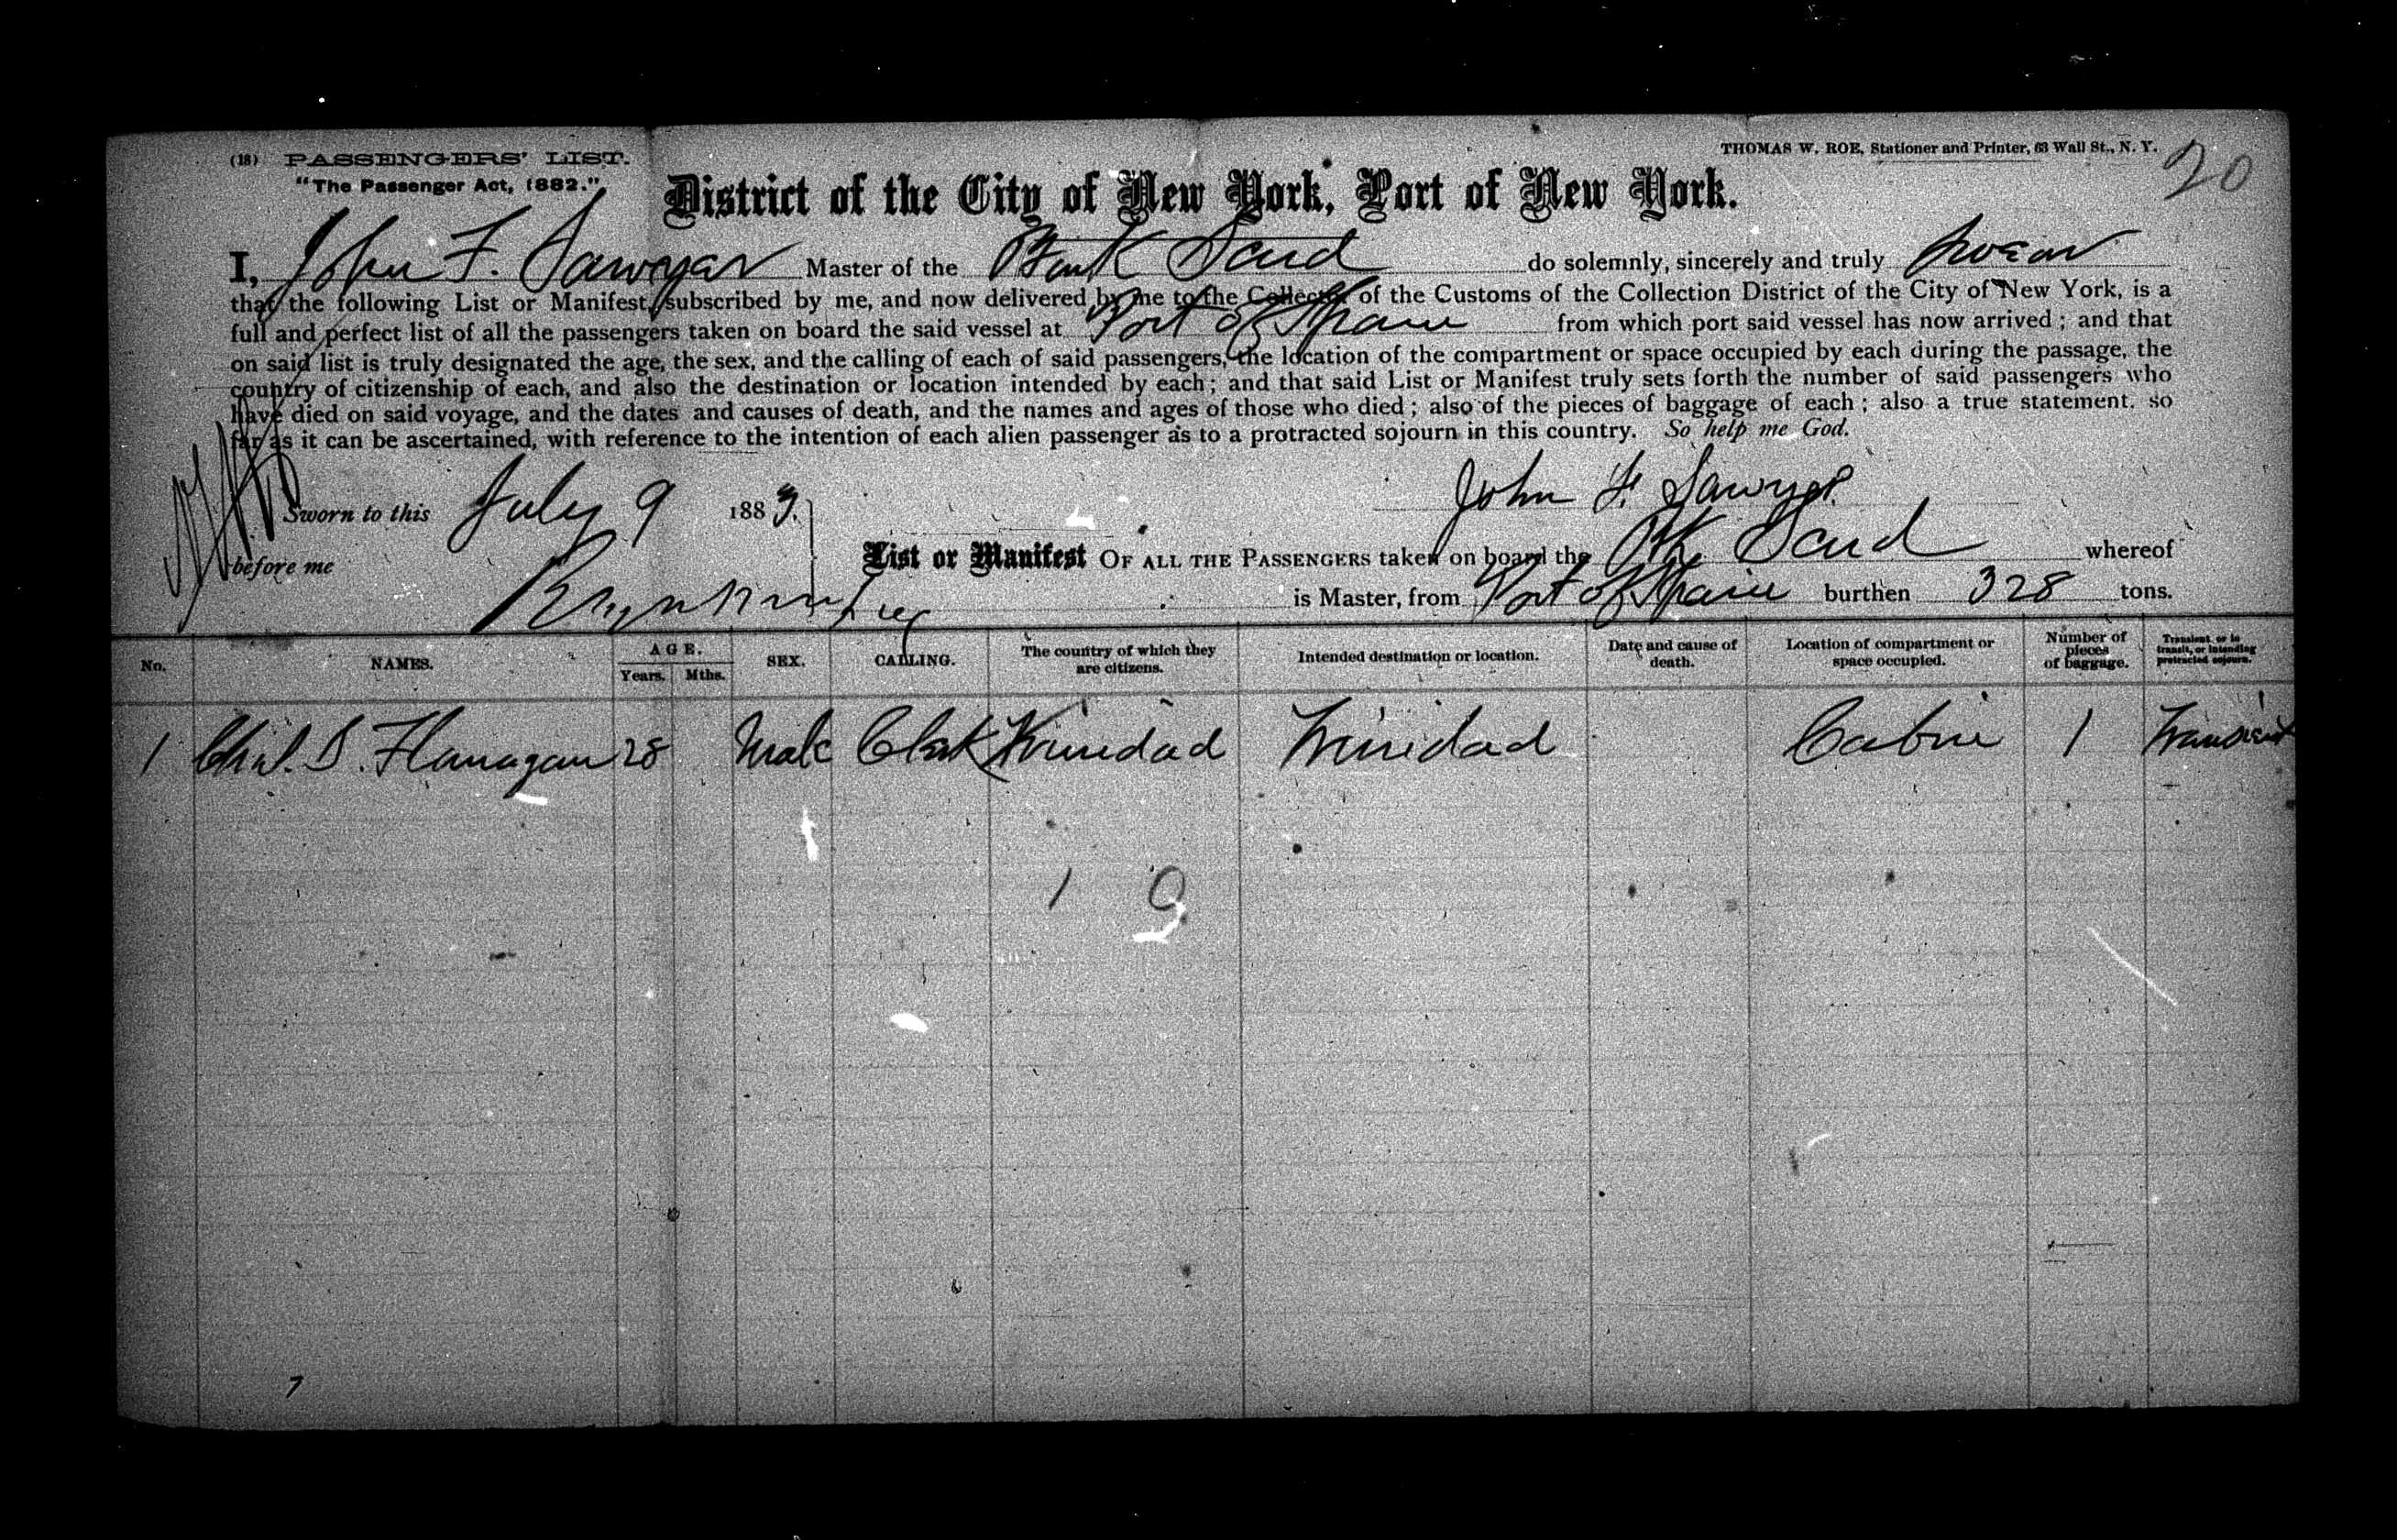 (18) PASSENGERS' LIST.
"The Passenger Act, 1882."
THOMAS W. ROE, Stationer and Printer, 63 Wall St., N. Y.
20
District of the City of New York, Port of New York.
I, John F. Sawyer Master of the Bark Scud do solemnly, sincerely and truly swear
that the following List or Manifest, subscribed by me, and now delivered by me to the Collector of the Customs of the Collection District of the City of New York, is a
full and perfect list of all the passengers taken on board the said vessel at Port of Spain from which port said vessel has now arrived; and that
on said list is truly designated the age, the sex, and the calling of each of said passengers, the location of the compartment or space occupied by each during the passage, the
country of citizenship of each, and also the destination or location intended by each; and that said List or Manifest truly sets forth the number of said passengers who
have died on said voyage, and the dates and causes of death, and the names and ages of those who died; also of the pieces of baggage of each; also a true statement, so
far as it can be ascertained, with reference to the intention of each alien passenger as to a protracted sojourn in this country. So help me God.
Sworn to this July 9 1883. John F. Sawyer
before me
List or Manifest OF ALL THE PASSENGERS taken on board the Bk Scud whereof
is Master, from Port of Spain burthen 328 tons.
No. NAMES. AGE. Years. Mths. SEX. CALLING. The country of which they are citizens. Intended destination or location. Date and cause of death. Location of compartment or space occupied. Number of pieces of baggage. Transient, or in transit, or intending protracted sojourn.
1 Chas. S. Flanagan 28 Male Clerk Trinidad Trinidad Cabin 1 Transient
1